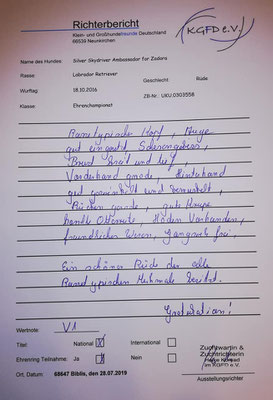 Richterbericht
Klein- und Großhundefreunde Deutschland
66539 Neunkirchen
KGFD e.V.
Name des Hundes: Silver Skydriver Ambassador for Zadora
Rasse Labrador Retriever
Geschlecht: Rüde
Wurftag 18.10.2016
ZB-Nr.: UKU.0303558
Klasse Ehrenchampionat
Rassetypischer Kopf, Auge
gut eingesetzt, Scherengebiss,
Brust breit und tief,
Vorderhand gerade, Hinterhand
gut gewinkelt und bemuskelt,
Rücken gerade, gute Kruppe
Otterrute, Hoden Vorhanden,
freundliches Wesen, Gangwerk frei,
Ein schöner Rüde der alle
Rassetypischen Merkmale besitzt.
Gratulation!
Wertnote: V1
Titel: National X International
Ehrenring Teilnahme: Ja X Nein
Zuchtwartin &
Zuchtrichterin
im KGFD e.V.
Ort, Datum: 68647 Biblis, den 28.07.2019
Ausstellungsrichter